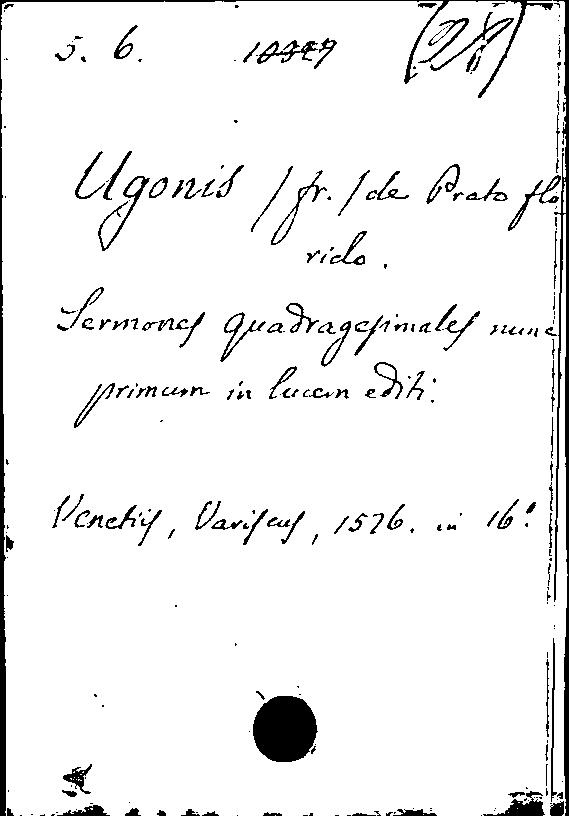 5. 6.
Ugonis /fr./ de Prato flo
rido.
Sermones quadragesimales nunc
primum in lucem editi.
Venetiis, Variscus, 1576. in 16.°